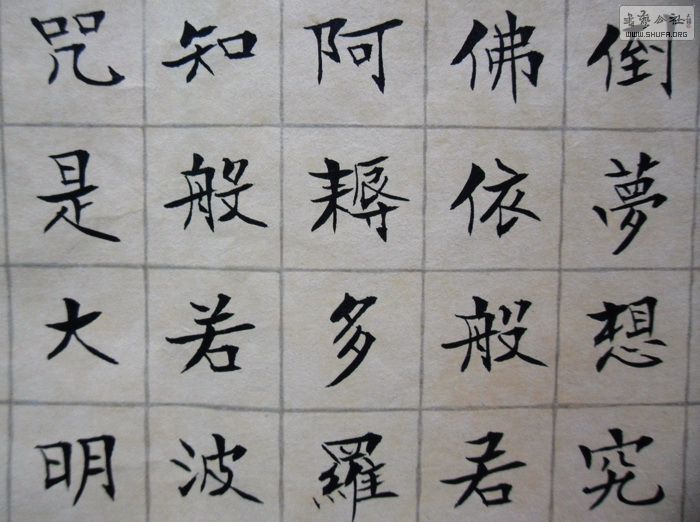 倒夢想究
佛依般若
阿耨多羅
知般若波
咒是大明
書藝公社
WWW.SHUFA.ORG